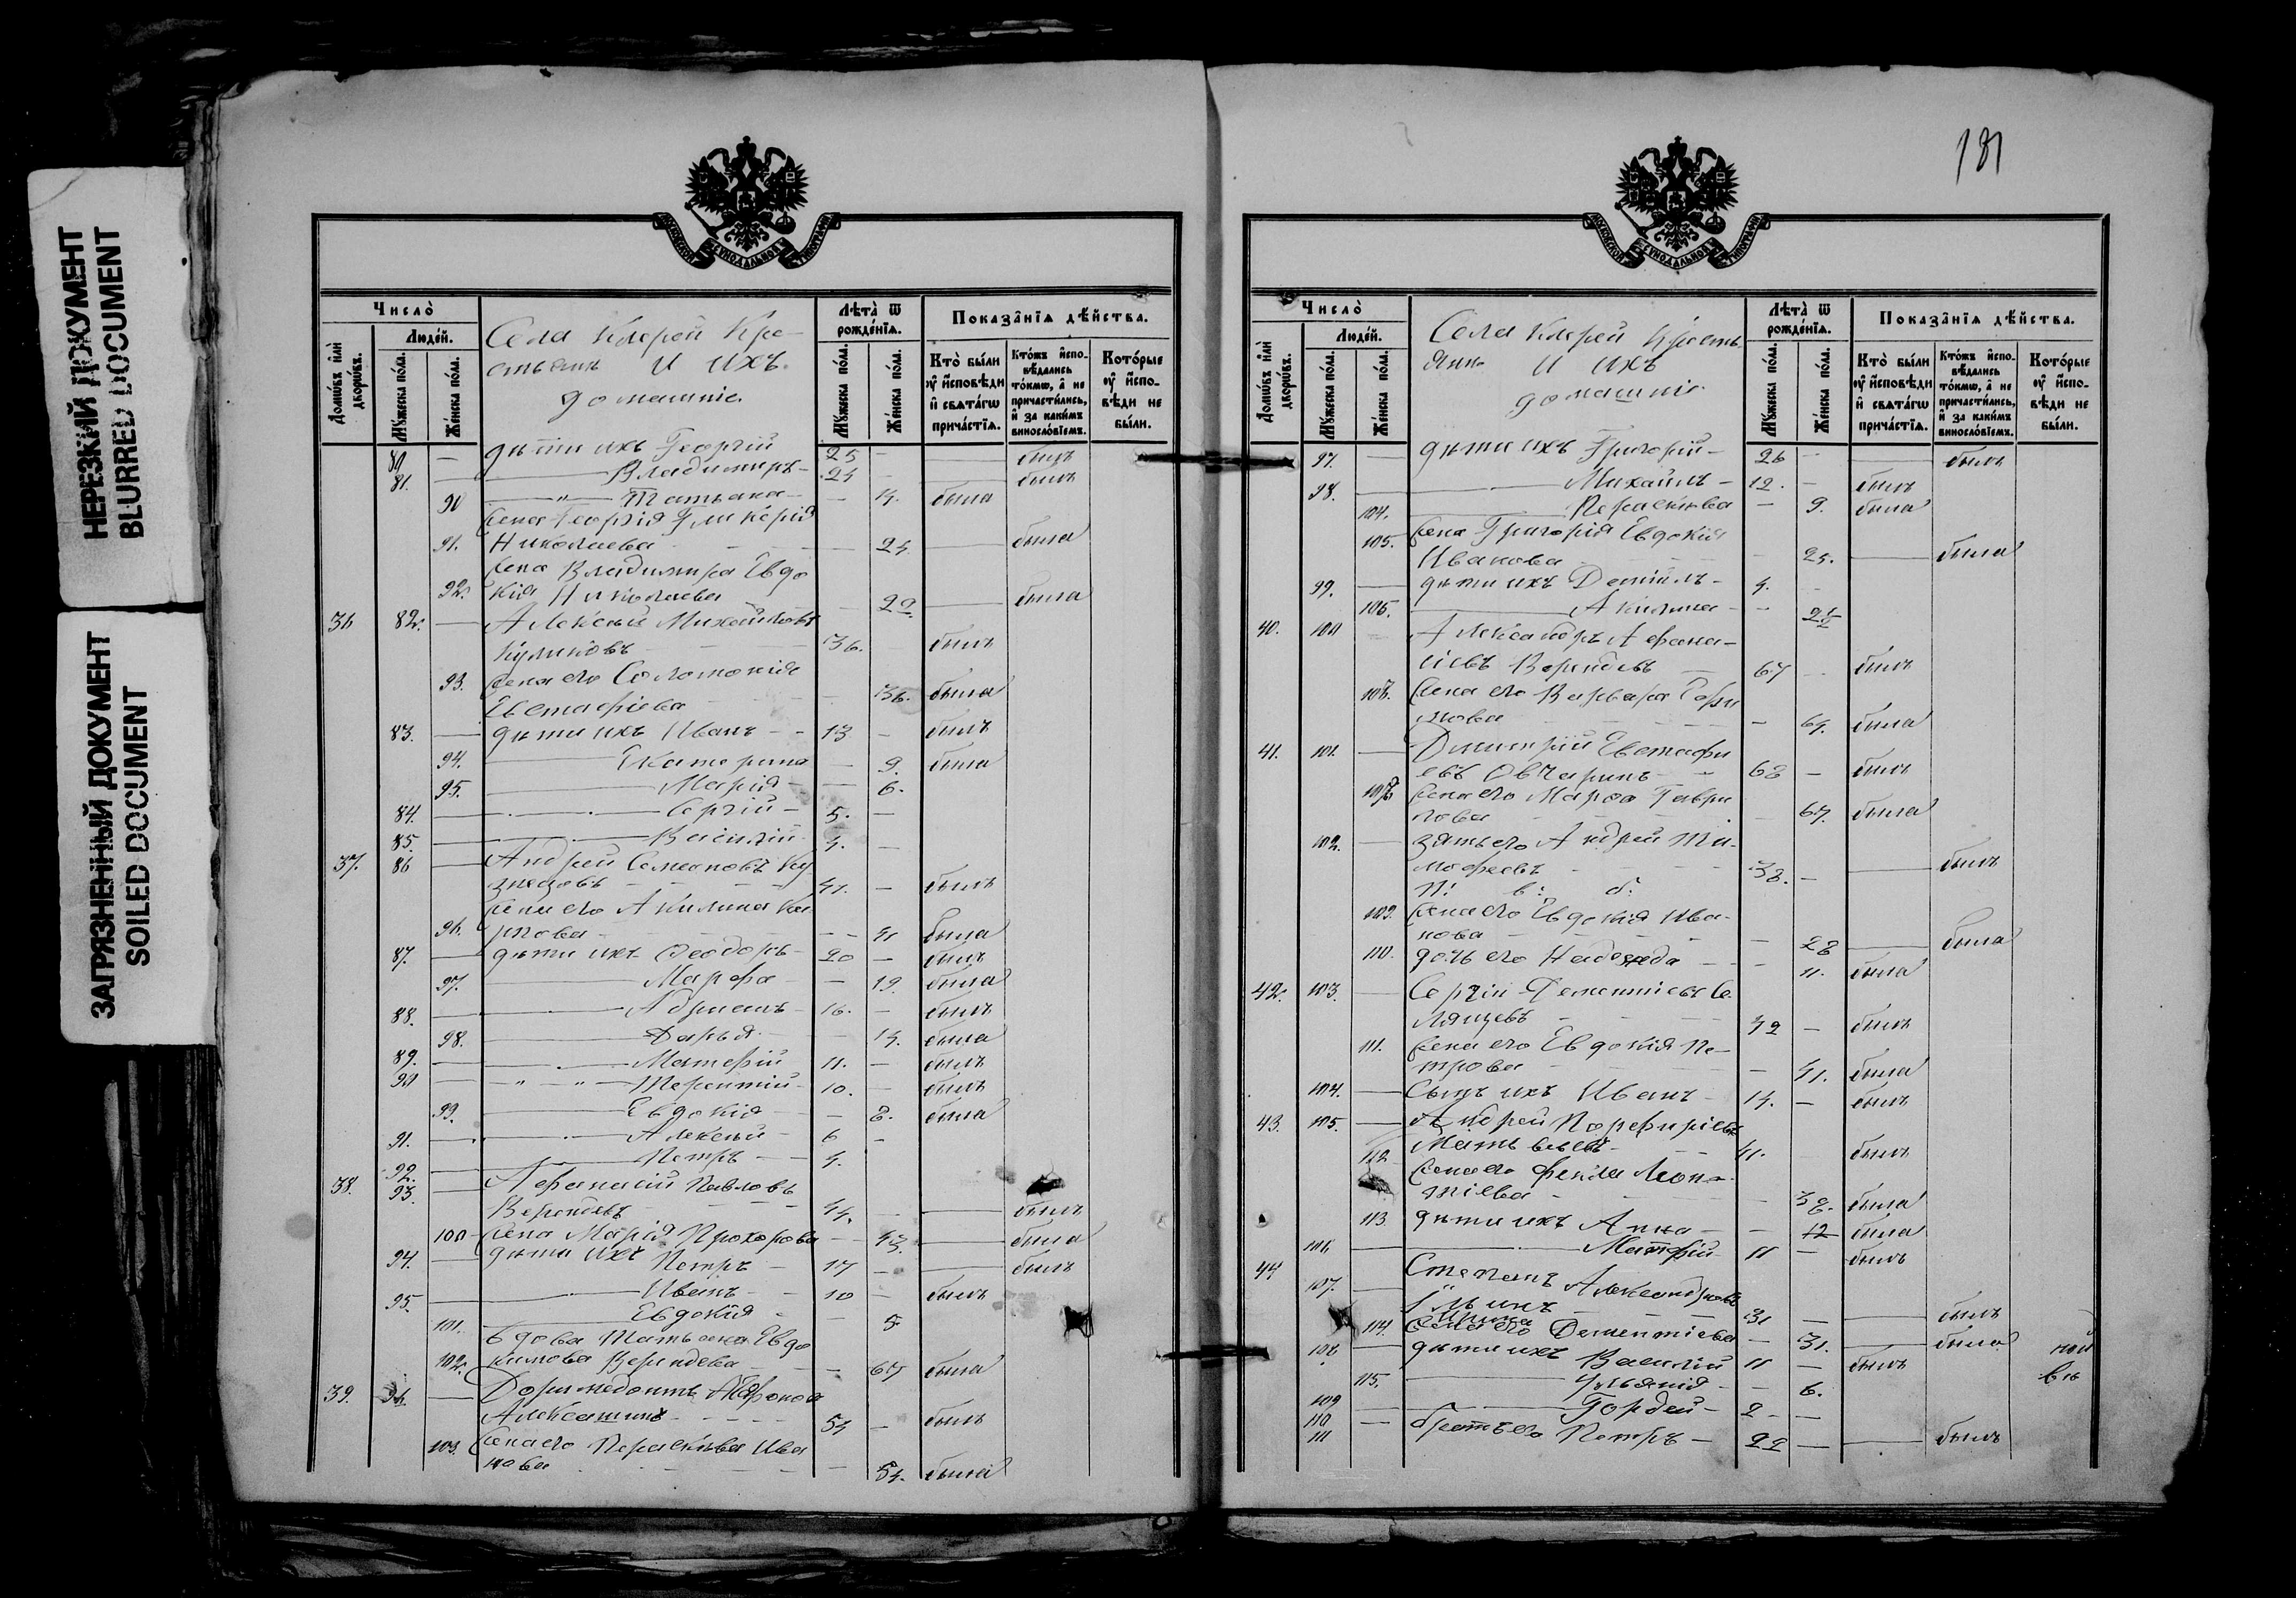 НЕРЕЗКИЙ ДОКУМЕНТ
BLURRED DOCUMENT
ЗАГРЯЗНЕННЫЙ ДОКУМЕНТ
SOILED DOCUMENT
МОСКОВСКОЙ СѴНОДАЛЬНОЙ ТИПОГРАФІИ
Число̀
Люде́й.
Мꙋ́жеска по́ла.
Же́нска по́ла.
Села Ключей Кре-
стьянъ и ихъ
домашніе.
Лѣта̀ ѿ рожде́нїѧ.
Мꙋ́жеска по́ла.
Же́нска по́ла.
Показа̑нїѧ дѣ́йства.
Кто̀ бы́ли ᲂу҆ и҆сповѣ́ди и҆ свѧта́гѡ прича́стїѧ.
Кто́жъ и҆спо-вѣ́дались то́кмѡ, а҆ не причасти́лись, и҆ за каки́мъ винослóвїемъ.
Кото́рые ᲂу҆ и҆спо-вѣ́ди не бы́ли.
80 — дѣти ихъ Георгій 25 — былъ
81. — Владимиръ — 24 былъ
90 — Татьяна — — 4. была
жена Георгія Гликерія
91. Николаева — 24 — была
жена Владимира Евдо
92. кія Николаева — 22 — была
36 82. — Алексей Михайловъ
Куликовъ 36. былъ
93. жена его Соломонія
Евстафіева 36. была
83. — дѣти ихъ Иванъ - - 13 — былъ
94. — Екатерина — 9. была
95. — Марія — 6.
84. — Сергій — 5. —
85. — Василій 4. —
37. 86 — Андрей Семеновъ Ку
знецовъ 41. — былъ
жена его Акилина Ка
96. рпова 41 была
87. — дѣти ихъ Феодоръ — 20 — былъ
97. — Марфа — 19. была
88. — Адрианъ — 16. — былъ
98. — Дарья — 14. была
89. — Матфій 11. — былъ
90 — " — " — Терентій — 10. — былъ
99. — Евдокія — 8. была
91. — Алексей — 6 —
92. — Петръ — 4.
38. 93. — Афанасій Павловъ
44. — былъ
100 жена Марія Прохорова — 43. — была
94. — дѣти ихъ Петръ — 17 — былъ
95. — Иванъ — 10 — былъ
101. — Евдокія — 5
вдова Татьяна Евдо
102. кимова — 67 была
39. 96. — Доримедонтъ
54 — былъ
103. жена его Параскѣва Ива
нова — 54. была
131
МОСКОВСКОЙ СѴНОДАЛЬНОЙ ТИПОГРАФІИ
Число̀
Люде́й.
Мꙋ́жеска по́ла.
Же́нска по́ла.
Села Ключей Кресть
янъ и ихъ
домашніе
Лѣта̀ ѿ рожде́нїѧ.
Мꙋ́жеска по́ла.
Же́нска по́ла.
Показа̑нїѧ дѣ́йства.
Кто̀ бы́ли ᲂу҆ и҆сповѣ́ди и҆ свѧта́гѡ прича́стїѧ.
Кто́жъ и҆спо-вѣ́дались то́кмѡ, а҆ не причасти́лись, и҆ за каки́мъ винослóвїемъ.
Кото́рые ᲂу҆ и҆спо-вѣ́ди не бы́ли.
97. — дѣти ихъ Григорій — 26 — былъ
98. — Михаилъ — 12. — былъ
104. — Параскѣва — 9. была
105. жена Григорія Евдокія
Иванова 25. — была
99. — дѣти ихъ Даніилъ — 4. —
106. — Акилина —
40. 100 Александръ Афана-
сіевъ 67 — былъ
107. жена его Варвара
— 69. была
41. 101. — Димитрій Евстафи
евъ Овчаринъ — 68 — былъ
108. жена его Марфа Гаври
лова 67. была
102. — зять его Андрей Ти-
мофеевъ 38. — былъ
109. жена его Евдокія Ива-
нова — 28 — была
110. дочь его Надежда — 11. была
42. 103. — Сергій Дементіевъ
42 — былъ
111. жена его Евдокія Пе-
трова — 41. была
104. — Сынъ ихъ Иванъ — 14. — былъ
43. 105. — Андрей Порфиріевъ
Матвеевъ — 41. былъ
112 жена его Фекла Леон-
тіева 38. была
113. дѣти ихъ Анна — 12 была
106. — Матфій 11 — былъ
44 107. — Степанъ Александровъ
31 — былъ
114. жена его Ирина Дементіева — 31. — была
108. — дѣти ихъ Василій 11 — былъ
115. — Ульянія — 6.
109 — Гордей — 2 —
110
111 братъ его Петръ — 22 — былъ